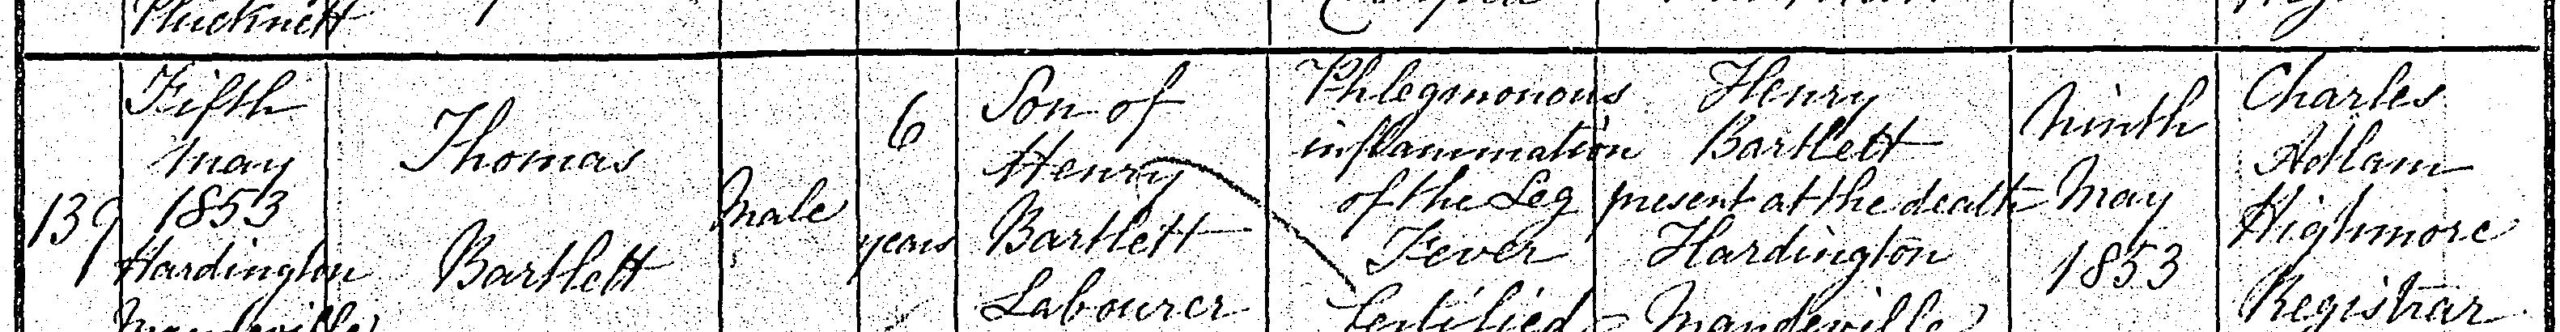 Plucknett
139
Fifth
May
1853
Hardington
Mandeville
Thomas
Bartlett
Male
6
years
Son of
Henry
Bartlett
Labourer
Phlegmonous
inflammation
of the Leg
Fever
Certified
Henry
Bartlett
present at the death
Hardington
Mandeville
Ninth
May
1853
Charles
Adlam
Highmore
Registrar